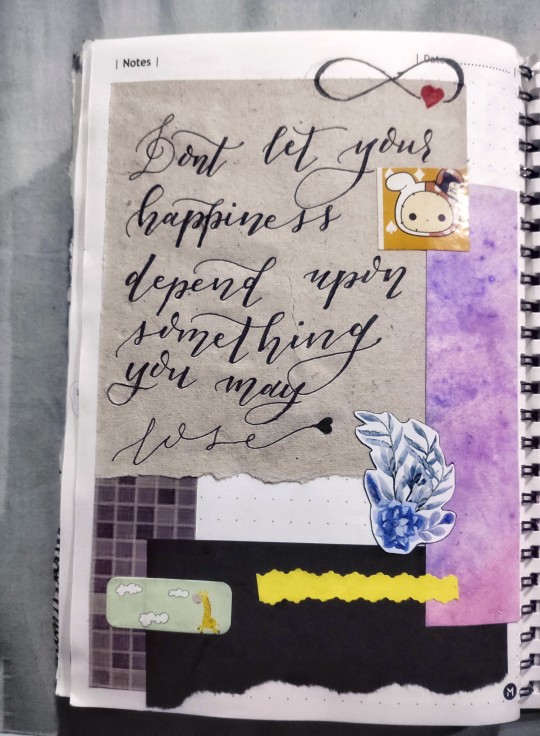 | Notes |
| Date
Dont let your
happiness
depend upon
something
you may
lose
M